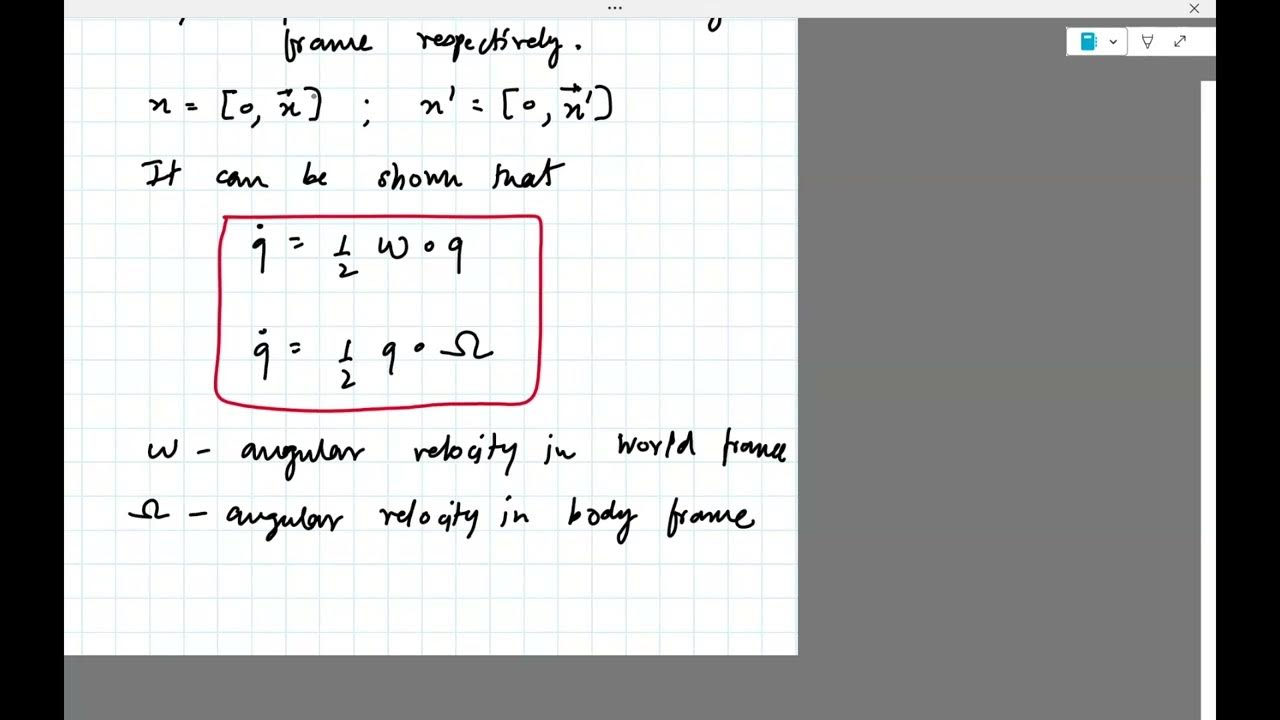 frame respectively.
x = [0, x⃗] ; x' = [0, x⃗']
It can be shown that
q̇ = 1/2 ω ∘ q
q̇ = 1/2 q ∘ Ω
ω - angular velocity in world frame
Ω - angular velocity in body frame